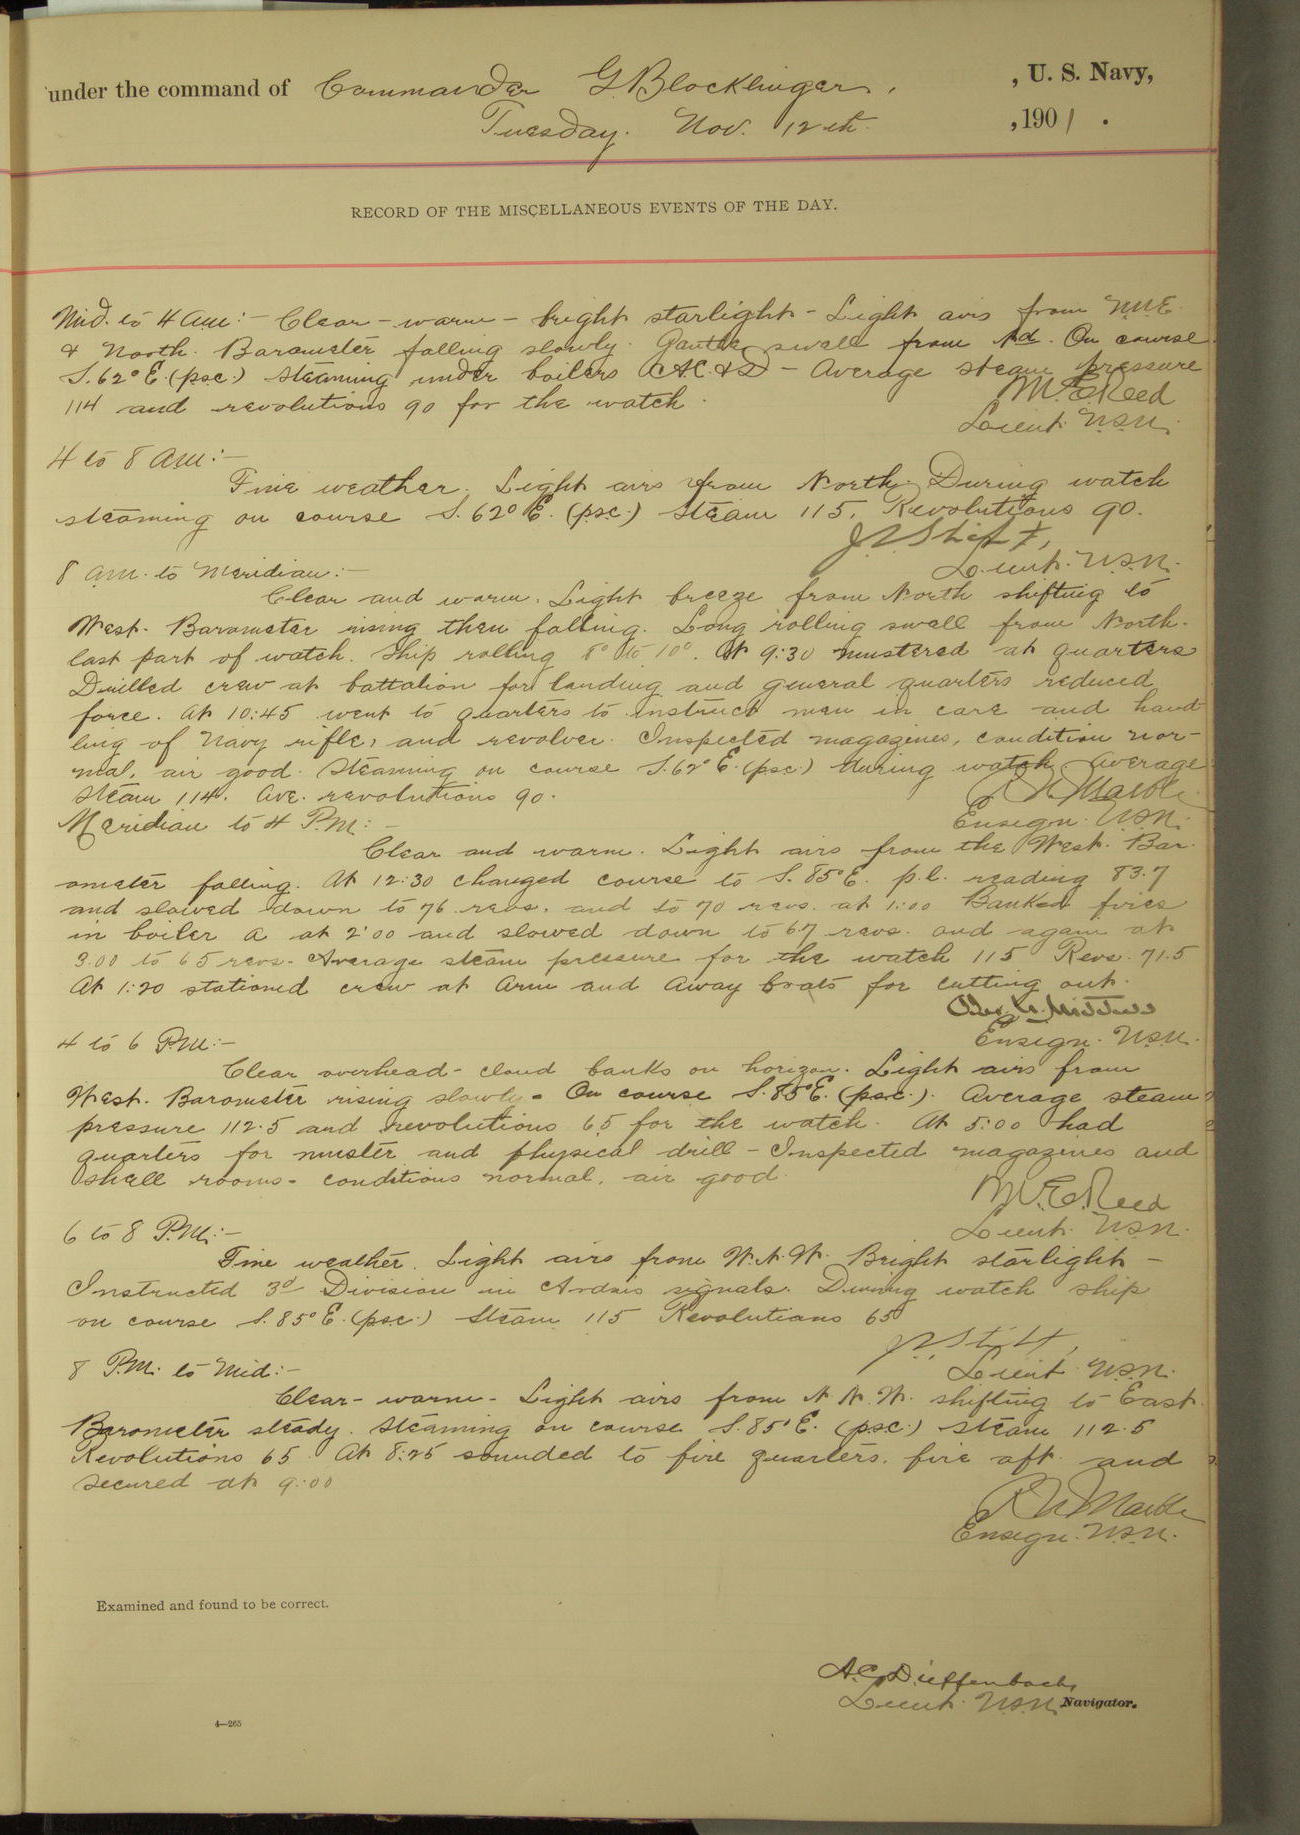 under the command of Commander G Blocklinger, , U. S. Navy,
Tuesday. Nov. 12th. , 1901 .
RECORD OF THE MISCELLANEOUS EVENTS OF THE DAY.
Mid. to 4 am:- Clear - warm - bright starlight - Light airs from NNE
& North. Barometer falling slowly. Gentle swell from Nd. On course
S. 62° E. (psc.) steaming under boilers A C & D - Average steam pressure
114 and revolutions 90 for the watch.
M. E. Reed
Lieut. U.S.N.
4 to 8 am:-
Fine weather. Light airs from North. During watch
steaming on course S. 62° E. (psc.) Steam 115. Revolutions 90.
Lieut. U.S.N.
8 am. to Meridian:-
Clear and warm. Light breeze from North shifting to
West. Barometer rising then falling. Long rolling swell from North.
last part of watch. Ship rolling 8° to 10°. At 9:30 mustered at quarters
Drilled crew at battalion for landing and general quarters reduced
force. At 10:45 went to quarters to instruct men in care and hand-
ling of Navy rifle, and revolver. Inspected magazines, condition nor-
mal, air good. Steaming on course S. 62° E. (psc.) during watch. Average
steam 114. Ave. revolutions 90.
Ensign. U.S.N.
Meridian to 4 P.M:-
Clear and warm. Light airs from the West. Bar-
ometer falling. At 12:30 changed course to S. 85° E. p.c. reading 83.7
and slowed down to 76 revs. and to 70 revs. at 1:00 Banked fires
in boiler A at 2:00 and slowed down to 67 revs. and again at
3.00 to 65 revs. Average steam pressure for the watch 115 Revs. 71.5
At 1:20 stationed crew at Arm and Away boats for cutting out.
Ensign. U.S.N.
4 to 6 P.M:-
Clear overhead - cloud banks on horizon. Light airs from
West. Barometer rising slowly. On course S. 85° E. (psc.). Average steam
pressure 112.5 and revolutions 65 for the watch. At 5:00 had
quarters for muster and physical drill - Inspected magazines and
shell rooms - conditions normal, air good.
M. E. Reed
Lieut. U.S.N.
6 to 8 P.M:-
Fine weather. Light airs from W.N.W. Bright starlight -
Instructed 3d Division in Ardois signals. During watch ship
on course S. 85° E. (psc.) Steam 115 Revolutions 65
Lieut. U.S.N.
8 P.M. to Mid:-
Clear - warm - Light airs from N.N.W. shifting to East.
Barometer steady. Steaming on course S. 85° E. (psc.) Steam 112.5
Revolutions 65. At 8:25 sounded to fire quarters, fire aft. and
secured at 9:00
Ensign. U.S.N.
Examined and found to be correct.
A. C. Dieffenbach,
Lieut. U.S.N. Navigator.
4—265